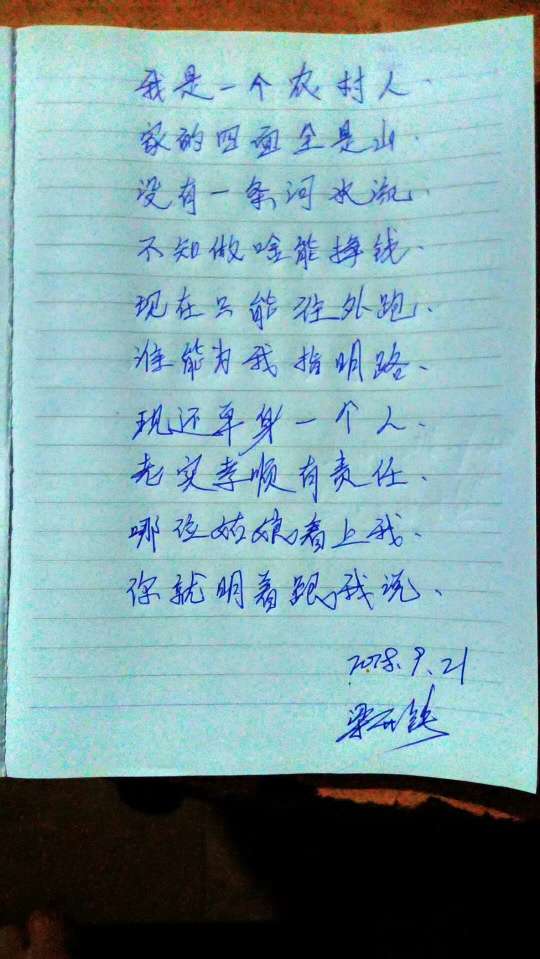 我是一个农村人.
家的四面全是山.
没有一条河水流.
不知做啥能挣钱.
现在只能往外跑.
谁能为我指明路.
现还单身一个人.
老实孝顺有责任.
哪位姑娘看上我.
你就明着跟我说.
2018.9.21
梁